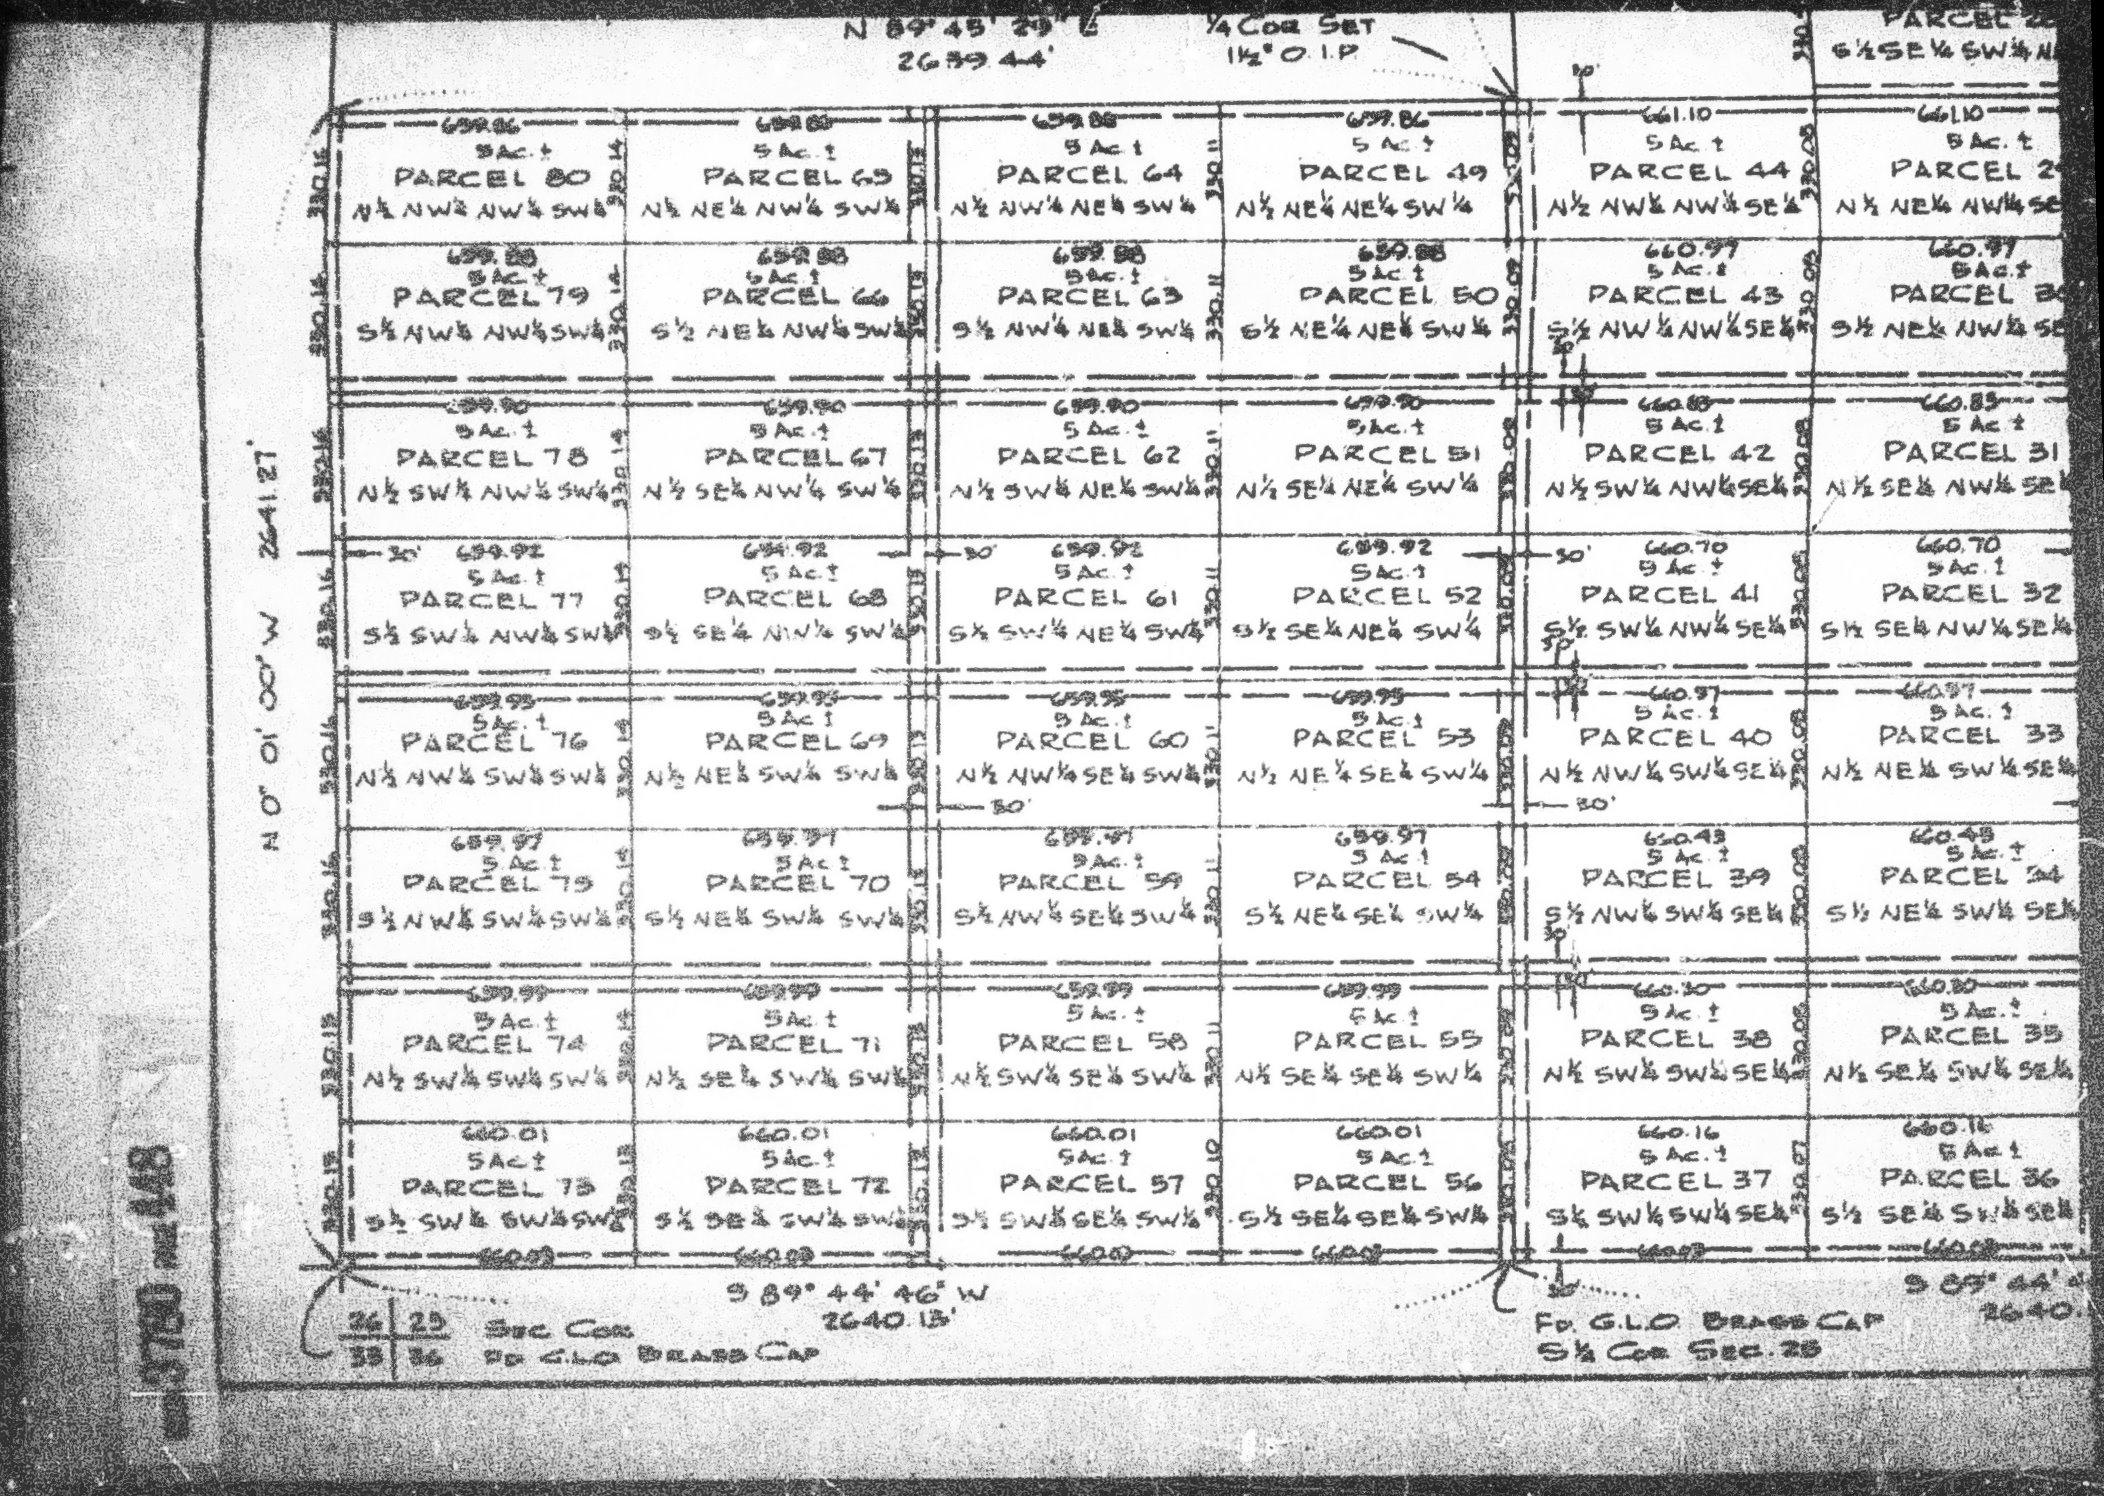 N 89° 45' 29" E
2639.44'
1/4 COR SET
1 1/2" O.I.P.
PARCEL
S 1/2 SE 1/4 SW 1/4
30'
659.86
5 AC. ±
PARCEL 80
N 1/2 NW 1/4 NW 1/4 SW 1/4
330.16
330.14
659.86
5 AC. ±
PARCEL 65
N 1/2 NE 1/4 NW 1/4 SW 1/4
330.13
659.86
5 AC ±
PARCEL 64
N 1/2 NW 1/4 NE 1/4 SW 1/4
330.11
659.86
5 AC. ±
PARCEL 49
N 1/2 NE 1/4 NE 1/4 SW 1/4
330.09
661.10
5 AC ±
PARCEL 44
N 1/2 NW 1/4 NW 1/4 SE 1/4
330.08
661.10
5 AC. ±
PARCEL
N 1/2 NE 1/4 NW 1/4 SE
659.88
5 AC. ±
PARCEL 79
S 1/2 NW 1/4 NW 1/4 SW 1/4
330.14
659.88
5 AC. ±
PARCEL 66
S 1/2 NE 1/4 NW 1/4 SW 1/4
330.13
659.88
5 AC. ±
PARCEL 63
S 1/2 NW 1/4 NE 1/4 SW 1/4
330.11
659.88
5 AC. ±
PARCEL 50
S 1/2 NE 1/4 NE 1/4 SW 1/4
330.09
660.97
5 AC. ±
PARCEL 43
S 1/2 NW 1/4 NW 1/4 SE 1/4
330.08
660.97
5 AC. ±
PARCEL 30
S 1/2 NE 1/4 NW 1/4 SE
659.90
5 AC. ±
PARCEL 78
N 1/2 SW 1/4 NW 1/4 SW 1/4
330.16
330.14
659.90
5 AC. ±
PARCEL 67
N 1/2 SE 1/4 NW 1/4 SW 1/4
330.13
659.90
5 AC. ±
PARCEL 62
N 1/2 SW 1/4 NE 1/4 SW 1/4
330.11
659.90
5 AC. ±
PARCEL 51
N 1/2 SE 1/4 NE 1/4 SW 1/4
330.09
660.83
5 AC. ±
PARCEL 42
N 1/2 SW 1/4 NW 1/4 SE 1/4
330.08
660.83
5 AC ±
PARCEL 31
N 1/2 SE 1/4 NW 1/4 SE 1/4
N 0° 01' 00" W 2641.27'
30'
659.92
5 AC. ±
PARCEL 77
S 1/2 SW 1/4 NW 1/4 SW 1/4
330.16
330.14
659.92
5 AC. ±
PARCEL 68
S 1/2 SE 1/4 NW 1/4 SW 1/4
330.13
30'
659.92
5 AC. ±
PARCEL 61
S 1/2 SW 1/4 NE 1/4 SW 1/4
330.11
659.92
5 AC. ±
PARCEL 52
S 1/2 SE 1/4 NE 1/4 SW 1/4
330.09
30'
660.70
5 AC. ±
PARCEL 41
S 1/2 SW 1/4 NW 1/4 SE 1/4
330.08
660.70
5 AC. ±
PARCEL 32
S 1/2 SE 1/4 NW 1/4 SE 1/4
659.95
5 AC. ±
PARCEL 76
N 1/2 NW 1/4 SW 1/4 SW 1/4
330.16
330.14
659.95
5 AC ±
PARCEL 69
N 1/2 NE 1/4 SW 1/4 SW 1/4
330.13
659.95
5 AC. ±
PARCEL 60
N 1/2 NW 1/4 SE 1/4 SW 1/4
330.11
30'
659.95
5 AC. ±
PARCEL 53
N 1/2 NE 1/4 SE 1/4 SW 1/4
330.09
660.57
5 AC. ±
PARCEL 40
N 1/2 NW 1/4 SW 1/4 SE 1/4
330.08
30'
660.57
5 AC. ±
PARCEL 33
N 1/2 NE 1/4 SW 1/4 SE 1/4
659.97
5 AC ±
PARCEL 75
S 1/2 NW 1/4 SW 1/4 SW 1/4
330.16
330.14
659.97
5 AC. ±
PARCEL 70
S 1/2 NE 1/4 SW 1/4 SW 1/4
330.13
659.97
5 AC. ±
PARCEL 59
S 1/2 NW 1/4 SE 1/4 SW 1/4
330.11
659.97
5 AC. ±
PARCEL 54
S 1/2 NE 1/4 SE 1/4 SW 1/4
330.09
660.43
5 AC. ±
PARCEL 39
S 1/2 NW 1/4 SW 1/4 SE 1/4
330.08
660.43
5 AC. ±
PARCEL 34
S 1/2 NE 1/4 SW 1/4 SE 1/4
659.99
5 AC. ±
PARCEL 74
N 1/2 SW 1/4 SW 1/4 SW 1/4
330.15
330.14
659.99
5 AC. ±
PARCEL 71
N 1/2 SE 1/4 SW 1/4 SW 1/4
330.13
659.99
5 AC. ±
PARCEL 58
N 1/2 SW 1/4 SE 1/4 SW 1/4
330.11
659.99
5 AC. ±
PARCEL 55
N 1/2 SE 1/4 SE 1/4 SW 1/4
330.09
660.30
5 AC. ±
PARCEL 38
N 1/2 SW 1/4 SW 1/4 SE 1/4
330.08
660.30
5 AC. ±
PARCEL 35
N 1/2 SE 1/4 SW 1/4 SE 1/4
660.01
5 AC ±
PARCEL 73
S 1/2 SW 1/4 SW 1/4 SW 1/4
330.15
330.13
660.03
660.01
5 AC. ±
PARCEL 72
S 1/2 SE 1/4 SW 1/4 SW 1/4
660.03
660.01
5 AC. ±
PARCEL 57
S 1/2 SW 1/4 SE 1/4 SW 1/4
330.10
660.03
660.01
5 AC. ±
PARCEL 56
S 1/2 SE 1/4 SE 1/4 SW 1/4
660.03
660.16
5 AC. ±
PARCEL 37
S 1/2 SW 1/4 SW 1/4 SE 1/4
330.07
660.03
660.16
5 AC ±
PARCEL 36
S 1/2 SE 1/4 SW 1/4 SE 1/4
660.03
S 89° 44' 46" W
2640.13'
S 89° 44'
2640.
30'
26 25
35 36
SEC COR
FD G.L.O BRASS CAP
FD. G.L.O. BRASS CAP
S 1/4 COR SEC. 25
3780 448